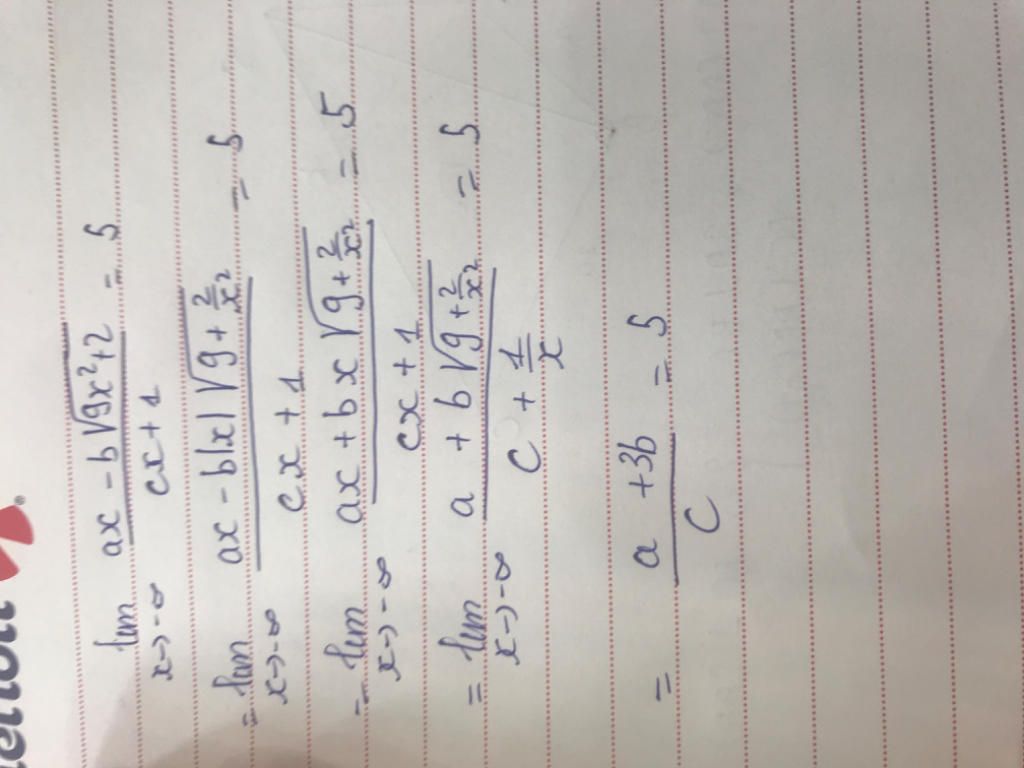 lim ax - b√9x²+2 / cx+1 = 5
x→-∞
= lim ax - b|x|√9 + 2/x² / cx + 1 = 5
x→-∞
= lim ax + bx√9 + 2/x² / cx + 1 = 5
x→-∞
= lim a + b√9 + 2/x² / c + 1/x = 5
x→-∞
= a + 3b / c = 5